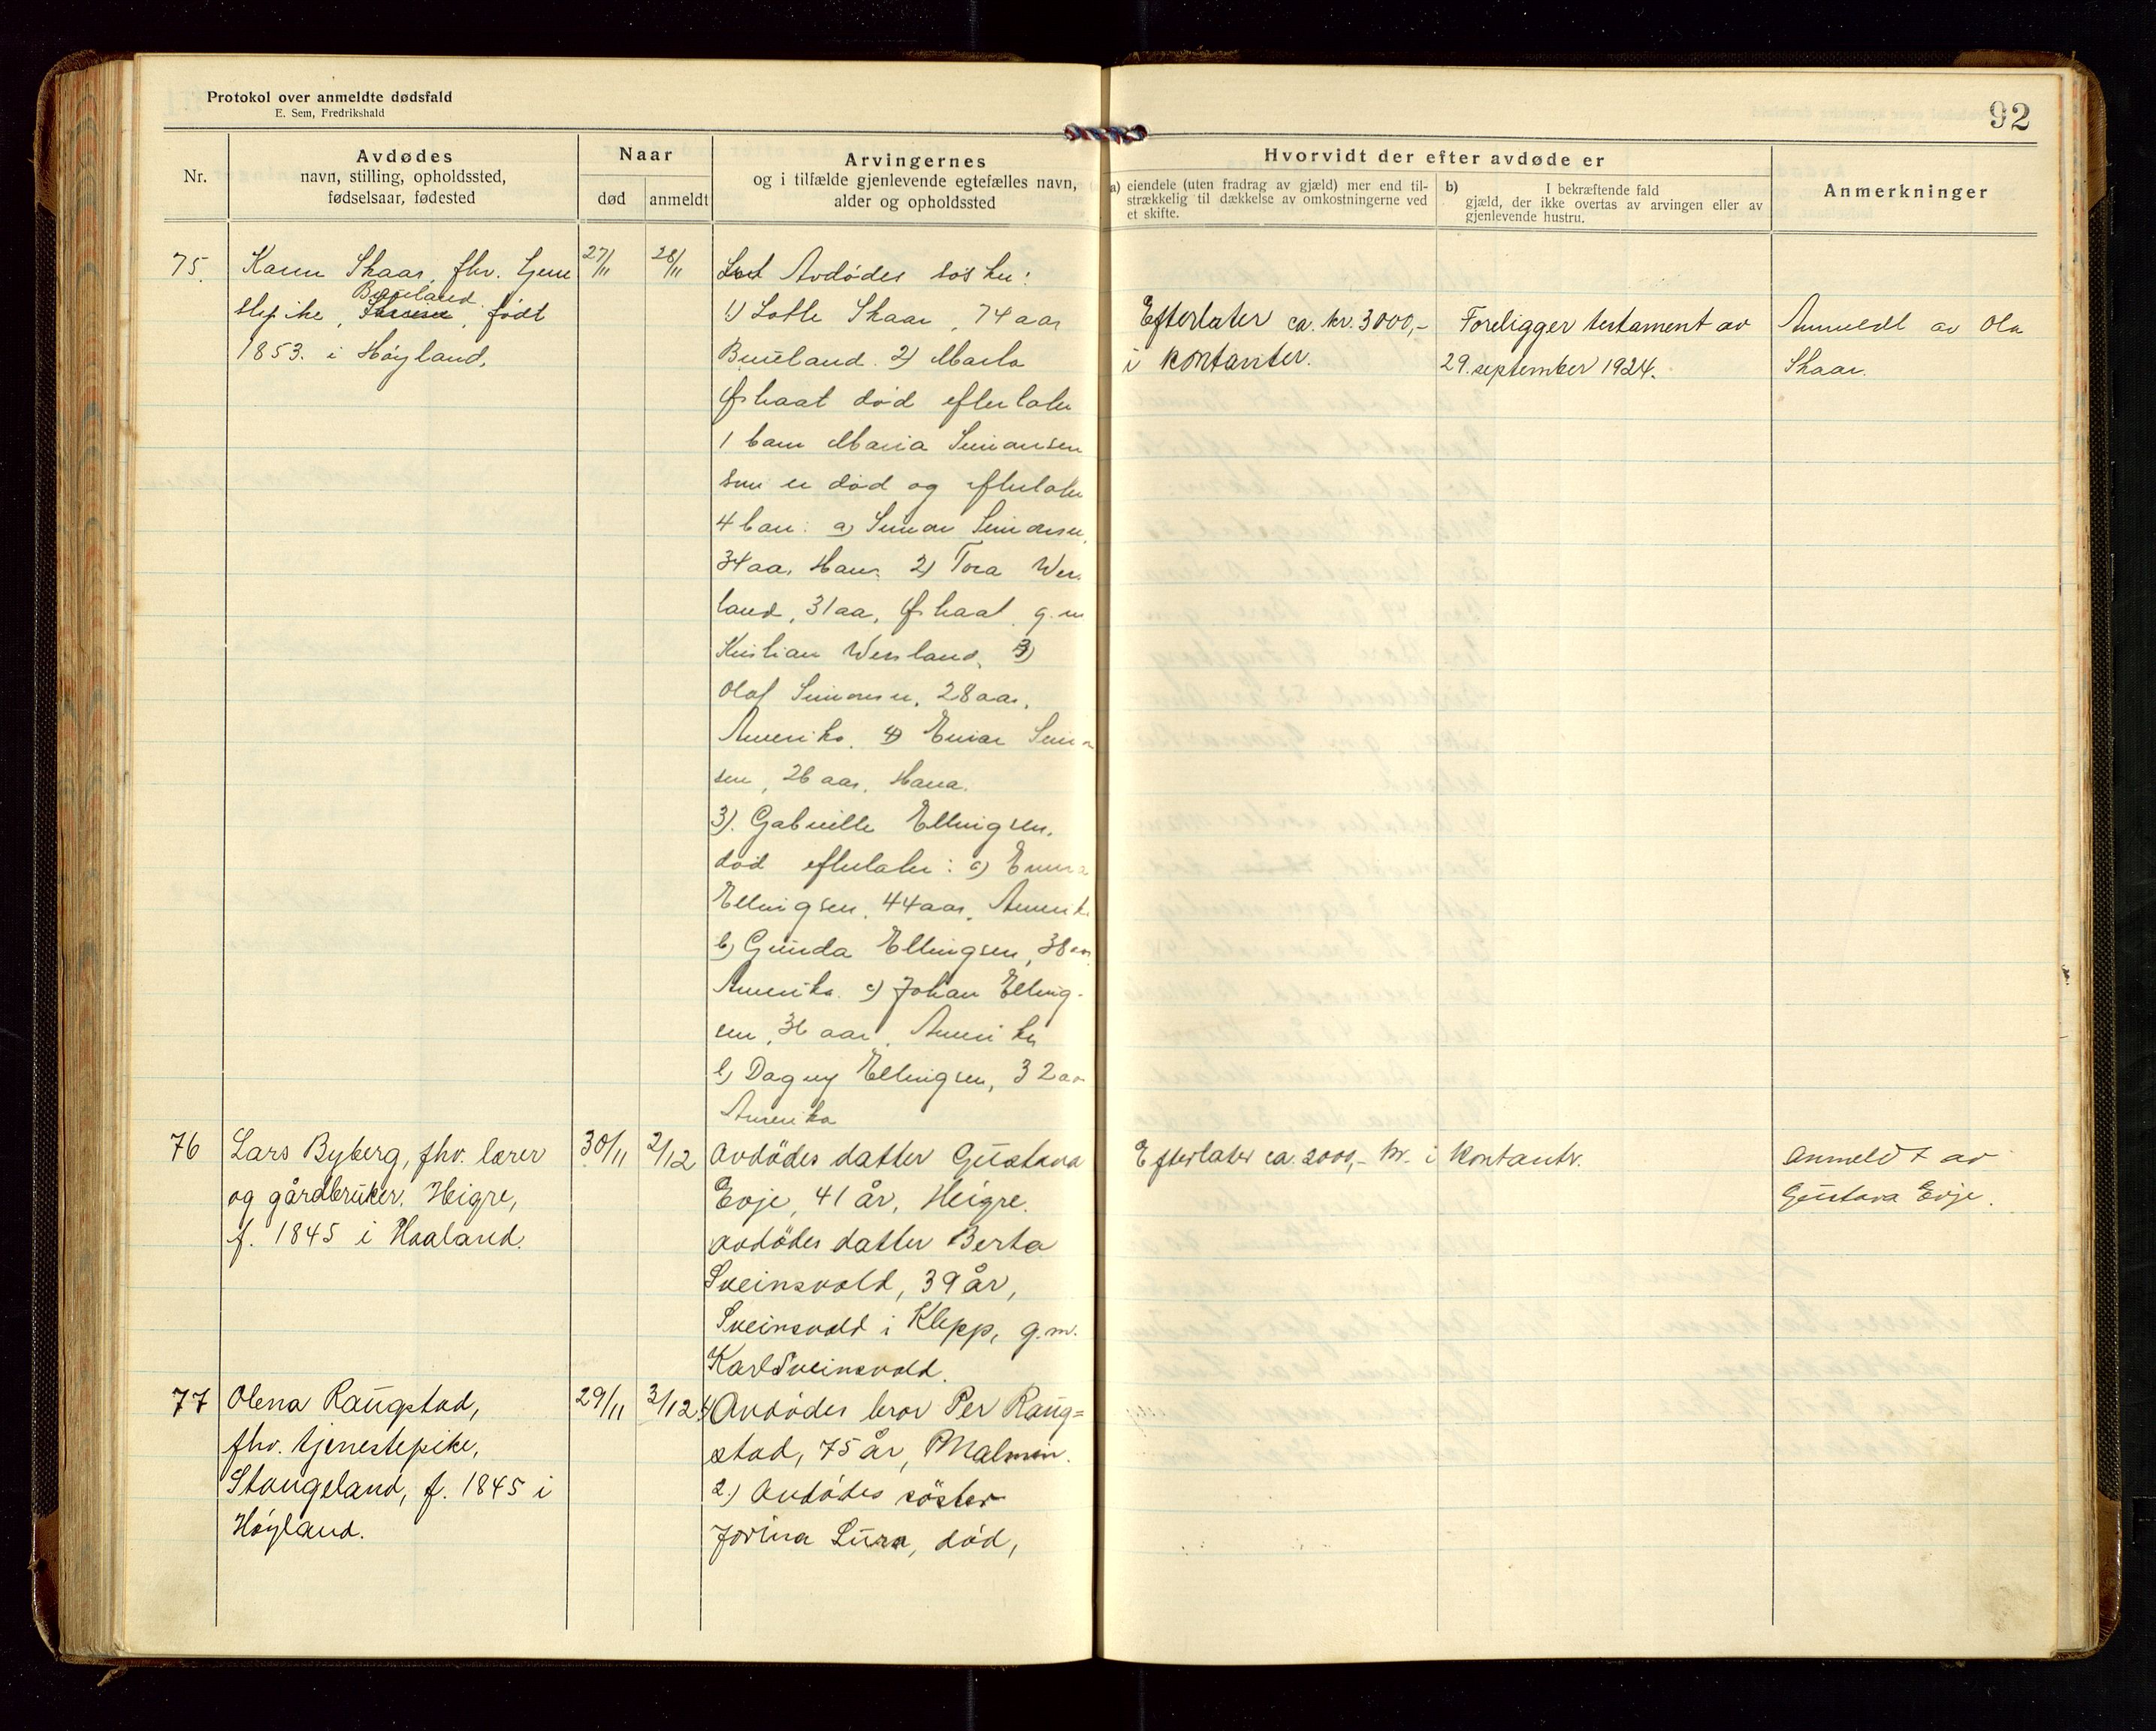 Protokol over anmeldte dødsfald
E. Sem, Fredrikshald
92
Nr.
Avdødes
navn, stilling, opholdssted,
fødselsaar, fødested
Naar
død
anmeldt
Arvingernes
og i tilfælde gjenlevende egtefælles navn,
alder og opholdssted
Hvorvidt der efter avdøde er
a) eiendele (uten fradrag av gjæld) mer end til-
strækkelig til dækkelse av omkostningerne ved
et skifte.
b) I bekræftende fald
gjæld, der ikke overtas av arvingen eller av
gjenlevende hustru.
Anmerkninger
75.
Karen Skaar, fhv. tjene
stepike, Bueland, født
1853. i Høyland.
27/11
28/11
Avdødes søsken:
1) Lotte Skaar, 74 aar
Bueland. 2) Marta
Øshaat død efterlater
1 barn Maria Simonsen
som er død og efterlater
4 barn: a) Simon Simonsen,
34 aar, Hana. 2) Tora Wers
land, 31 aa, Øshaat g.m
Kristian Wersland, 3)
Olaf Simonsen, 28 aar,
Amerika. 4) Einar Simon
sen, 26 aar, Hana.
3). Gabrielle Ellingsen,
død efterlater: a) Emma
Ellingsen, 44 aar, Amerika
b) Gunda Ellingsen, 38 aar
Amerika. c) Johan Elling-
sen, 36 aar, Amerika
b) Dagny Ellingsen, 32 aar
Amerika
Efterlater ca. kr. 3000,-
i kontanter.
Foreligger testament av
29. september 1924.
Anmeldt av Ola
Skaar.
76
Lars Byberg, fhv. lærer
og gårdbruker. Heigre,
f. 1845 i Haaland.
30/11
2/12
Avdödes datter Gustava
Evje, 41 år, Heigre.
avdödes datter Berta
Sveinsvold, 39 år,
Sveinsvold i Klepp, g.m.
Karl Sveinsvold.
Efterlater ca. 2000,- kr. i kontantr.
Anmeldt av
Gustava Evje.
77
Olena Raugstad,
fhv. tjenestepike,
Stangeland, f. 1845 i
Høyland.
29/11
3/12
1) Avdødes bror Per Raug=
stad, 75 år, Malmin.
2.) Avdødes söster
Jorina Lura, død,